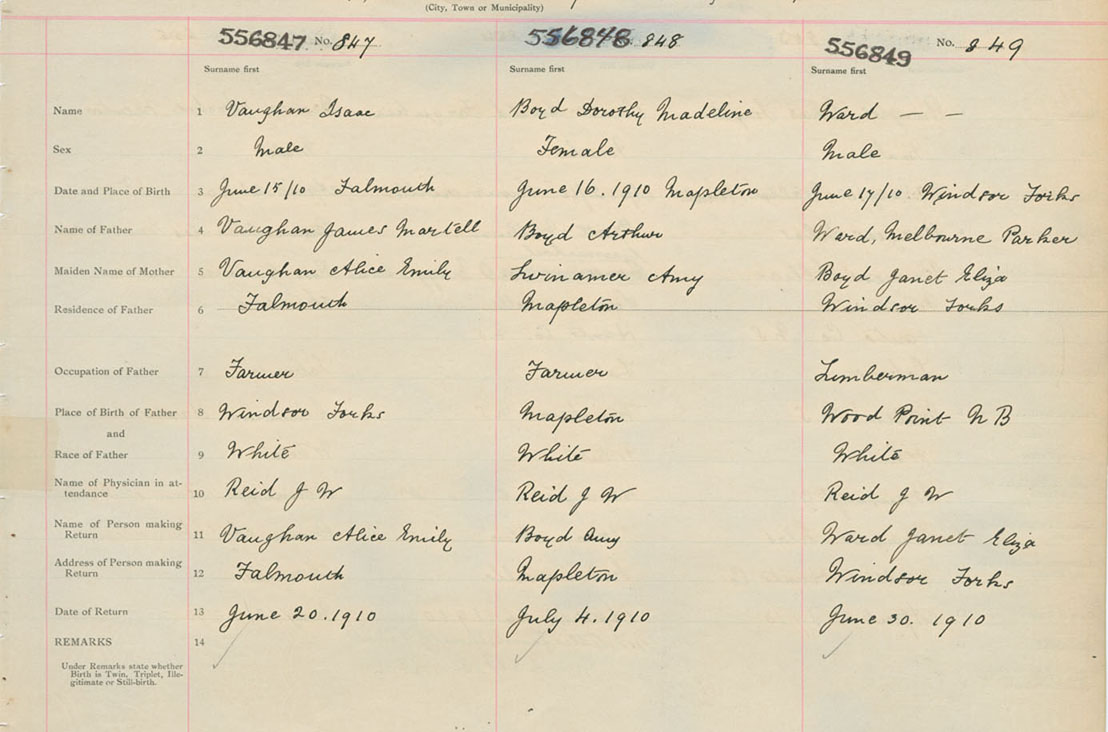 (City, Town or Municipality)
556847 No. 847 556848 848 556849 No. 849
Surname first Surname first Surname first
Name 1 Vaughan Isaac Boyd Dorothy Madeline Ward — —
Sex 2 Male Female Male
Date and Place of Birth 3 June 15/10 Falmouth June 16. 1910 Mapleton June 17/10. Windsor Forks
Name of Father 4 Vaughan James Martell Boyd Arthur Ward, Melbourne Parker
Maiden Name of Mother 5 Vaughan Alice Emily Lwinamer Amy Boyd Janet Eliza
Residence of Father 6 Falmouth Mapleton Windsor Forks
Occupation of Father 7 Farmer Farmer Lumberman
Place of Birth of Father 8 Windsor Forks Mapleton Wood Point N B
and
Race of Father 9 White White White
Name of Physician in at-
tendance 10 Reid J W Reid J W Reid J W
Name of Person making
Return 11 Vaughan Alice Emily Boyd Amy Ward Janet Eliza
Address of Person making
Return 12 Falmouth Mapleton Windsor Forks
Date of Return 13 June 20. 1910 July 4. 1910 June 30. 1910
REMARKS 14
Under Remarks state whether
Birth is Twin, Triplet, Ille-
gitimate or Still-birth.